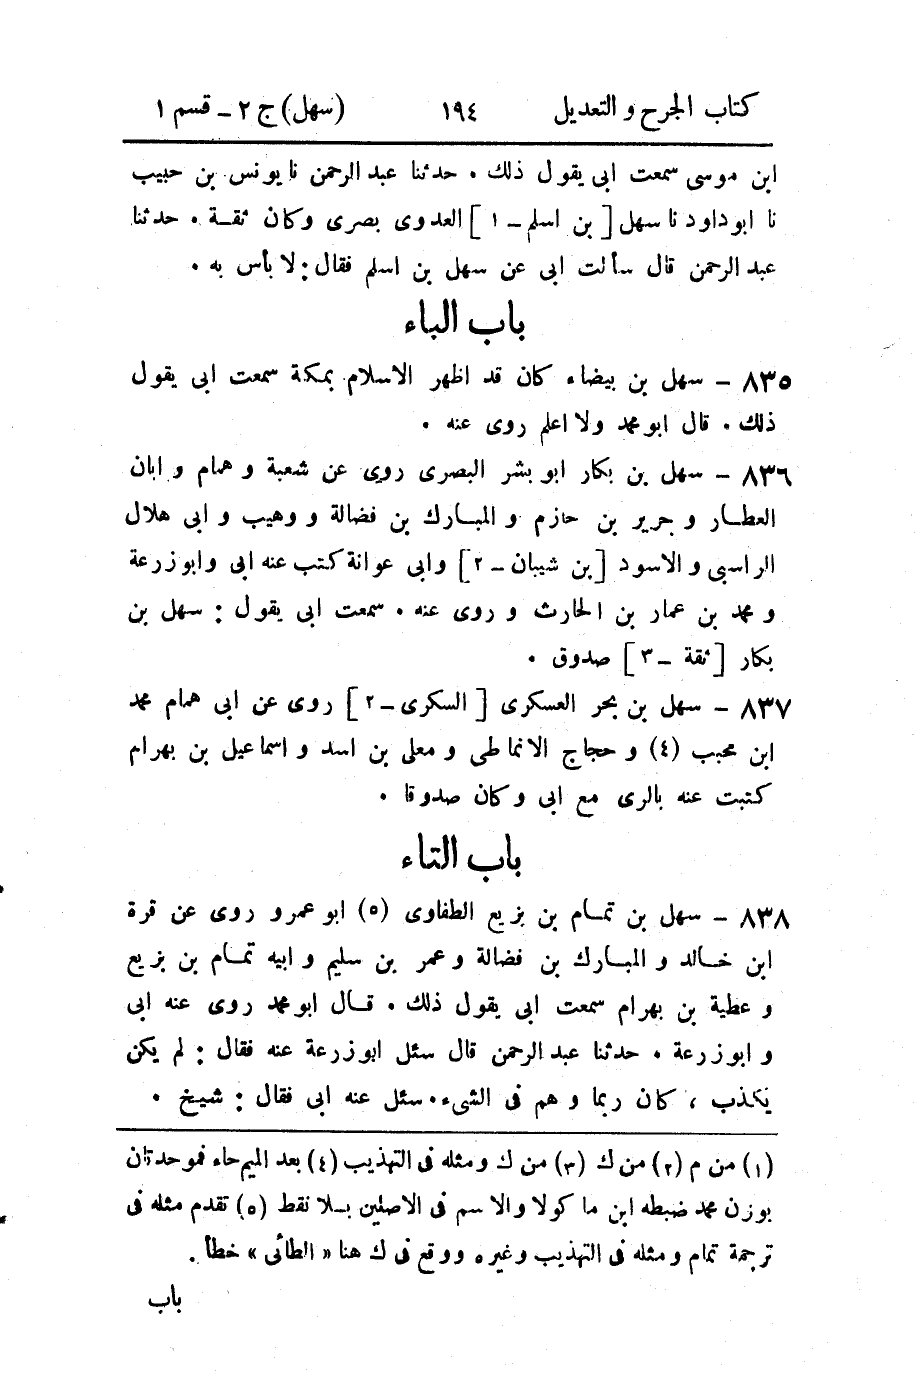 كتاب الجرح و التعديل ١٩٤ (سهل) ج ٢ ـ قسم ١
ابن موسى سمعت ابى يقول ذلك . حدثنا عبد الرحمن نا يونس بن حبيب
نا ابو داود نا سهل [ بن اسلم ـ ١ ] العدوى بصرى وكان ثقـة . حدثنا
عبد الرحمن قال سألت ابى عن سهل بن اسلم فقال : لا بأس به .
باب الباء
٨٣٥ ـ سهل بن بيضاء كان قد اظهر الاسلام بمكة سمعت ابى يقول
ذلك . قال ابو محمد ولا اعلم روى عنه .
٨٣٦ ـ سهل بن بكار ابو بشر البصرى روى عن شعبة و همام و ابان
العطـار و جرير بن حازم و المبـارك بن فضالة و وهيب و ابى هلال
الراسبى و الاسود [بن شيبان ـ ٢] وابى عوانة كتب عنه ابى وابو زرعة
و محمد بن عمار بن الحارث و روى عنه . سمعت ابى يقول : سهل بن
بكار [ ثقة ـ ٣ ] صدوق .
٨٣٧ ـ سهل بن بحر العسكرى [ السكرى ـ ٢ ] روى عن ابى همام محمد
ابن محبب (٤) و حجاج الانماطى و معلى بن اسد و اسماعيل بن بهرام
كتبت عنه بالرى مع ابى وكان صدوقا .
باب التاء
٨٣٨ ـ سهل بن تمـام بن بزيع الطفاوى (٥) ابو عمرو روى عن قرة
ابن خـالد و المبـارك بن فضالة و عمر بن سليم و ابيه تمـام بن بزيع
و عطية بن بهرام سمعت ابى يقول ذلك . قـال ابو محمد روى عنه ابى
و ابو زرعة . حدثنا عبد الرحمن قال سئل ابو زرعة عنه فقال : لم يكن
يكذب ، كان ربما وهم فى الشىء . سئل عنه ابى فقال : شيخ .
(١) من م (٢) من ك (٣) من ك ومثله فى التهذيب (٤) بعد الميم حاء فموحدتان
بوزن محمد ضبطه ابن ماكولا والاسم فى الاصلين بـلا نقط (٥) تقدم مثله فى
ترجمة تمام ومثله فى التهذيب وغيره ووقع فى ك هنا « الطائى » خطأ .
باب